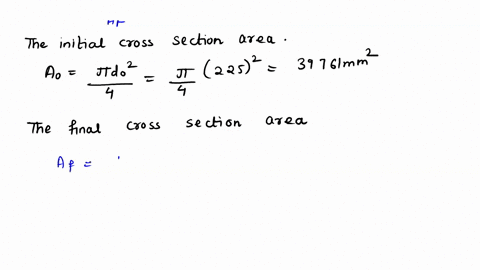 Af
The initial cross section area.
A₀ = πd₀²/4 = π/4 (225)² = 39761mm²
The final cross section area
Af =